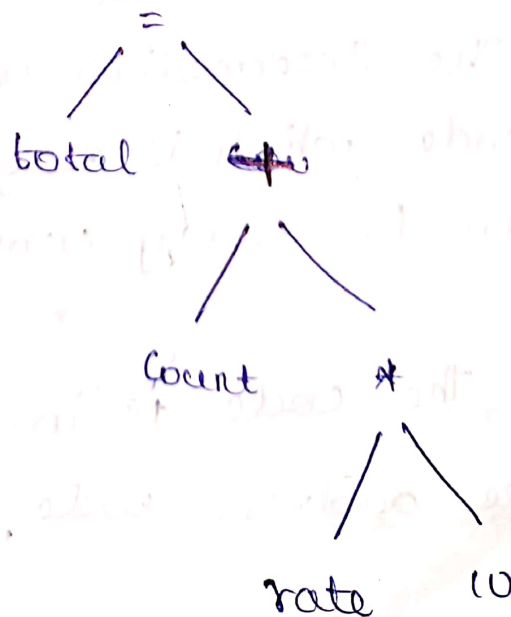 =
total +
Count *
rate 10